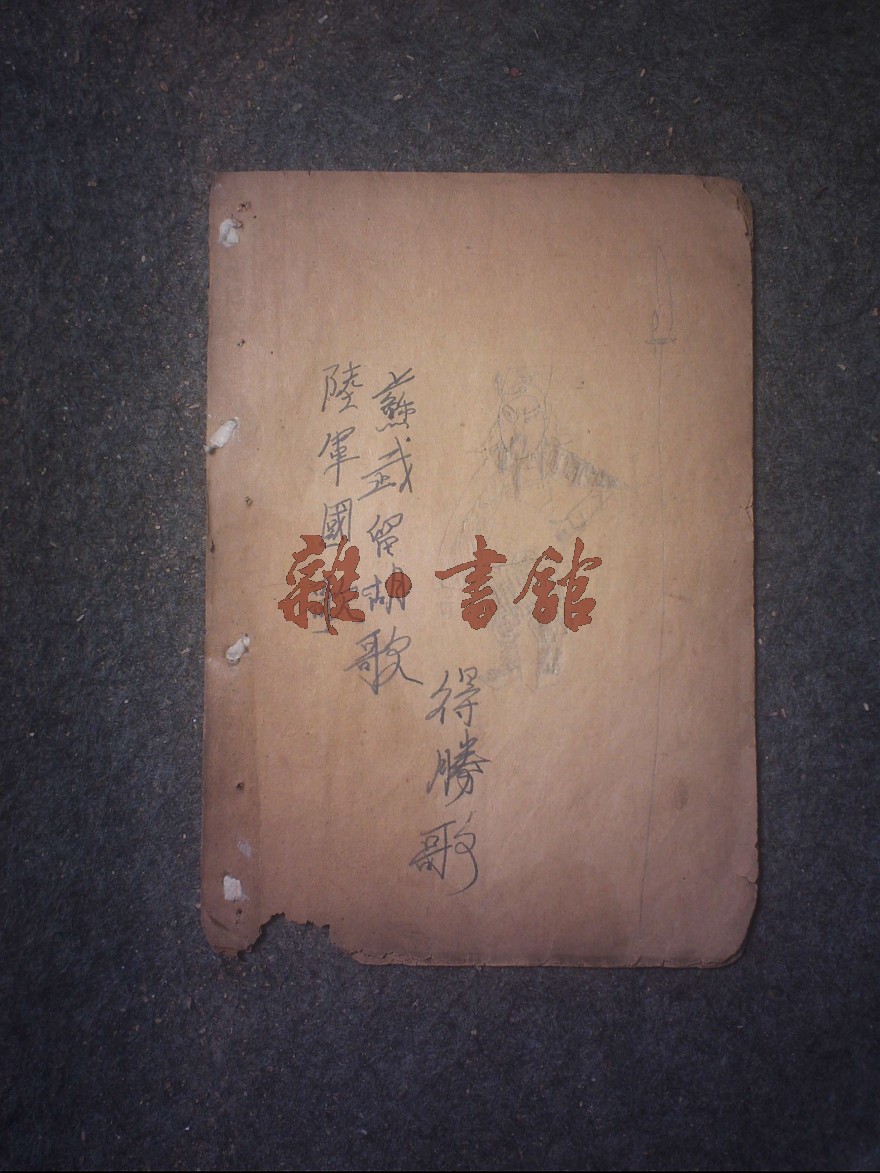 得勝歌
蘇武留胡歌
陸軍國歌
雜·書館